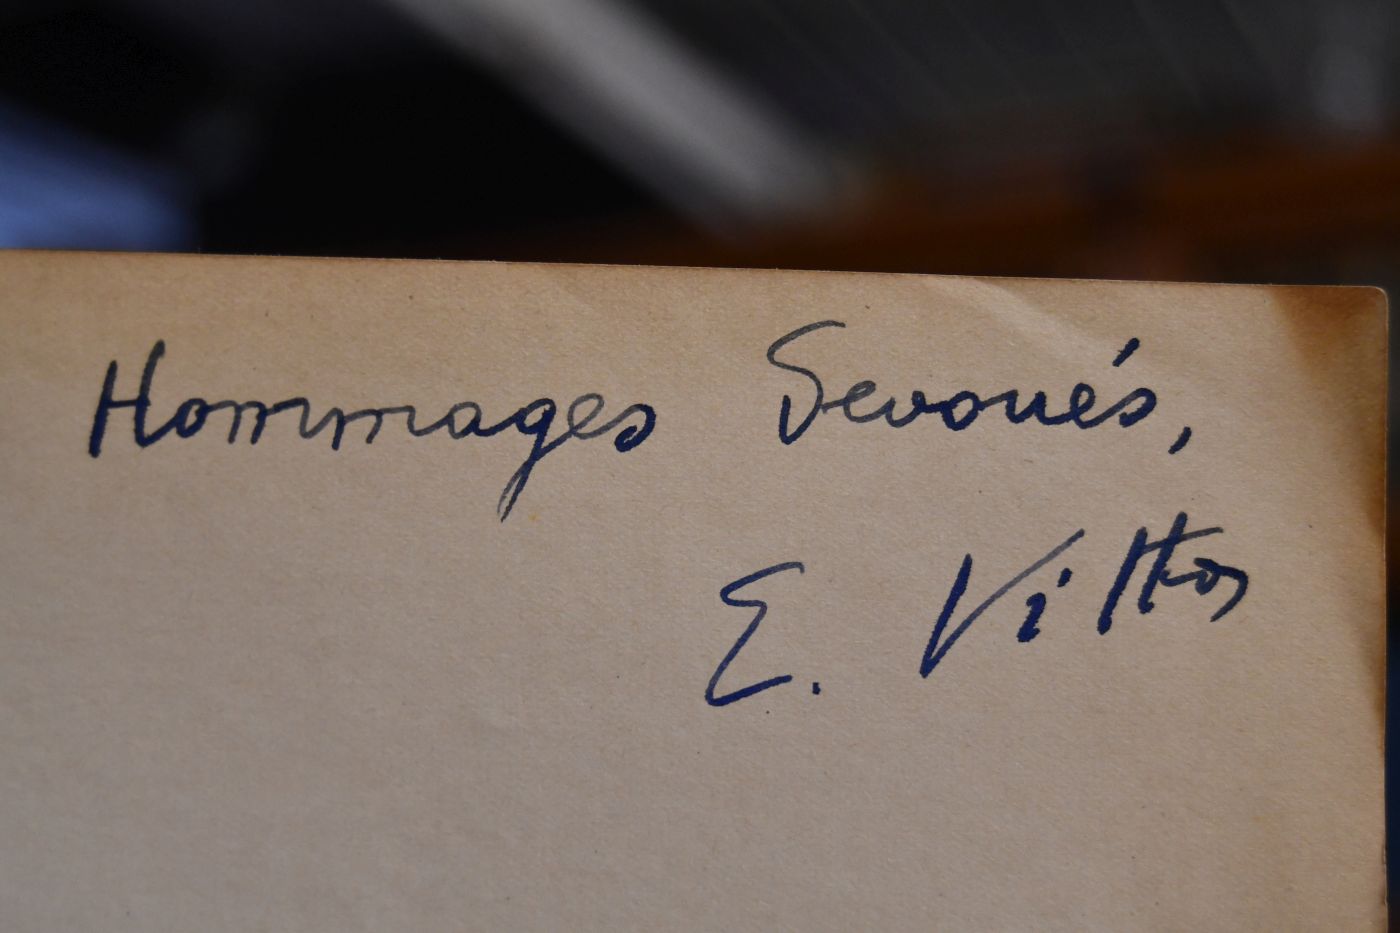 Hommages devoués,
E. Vittoz